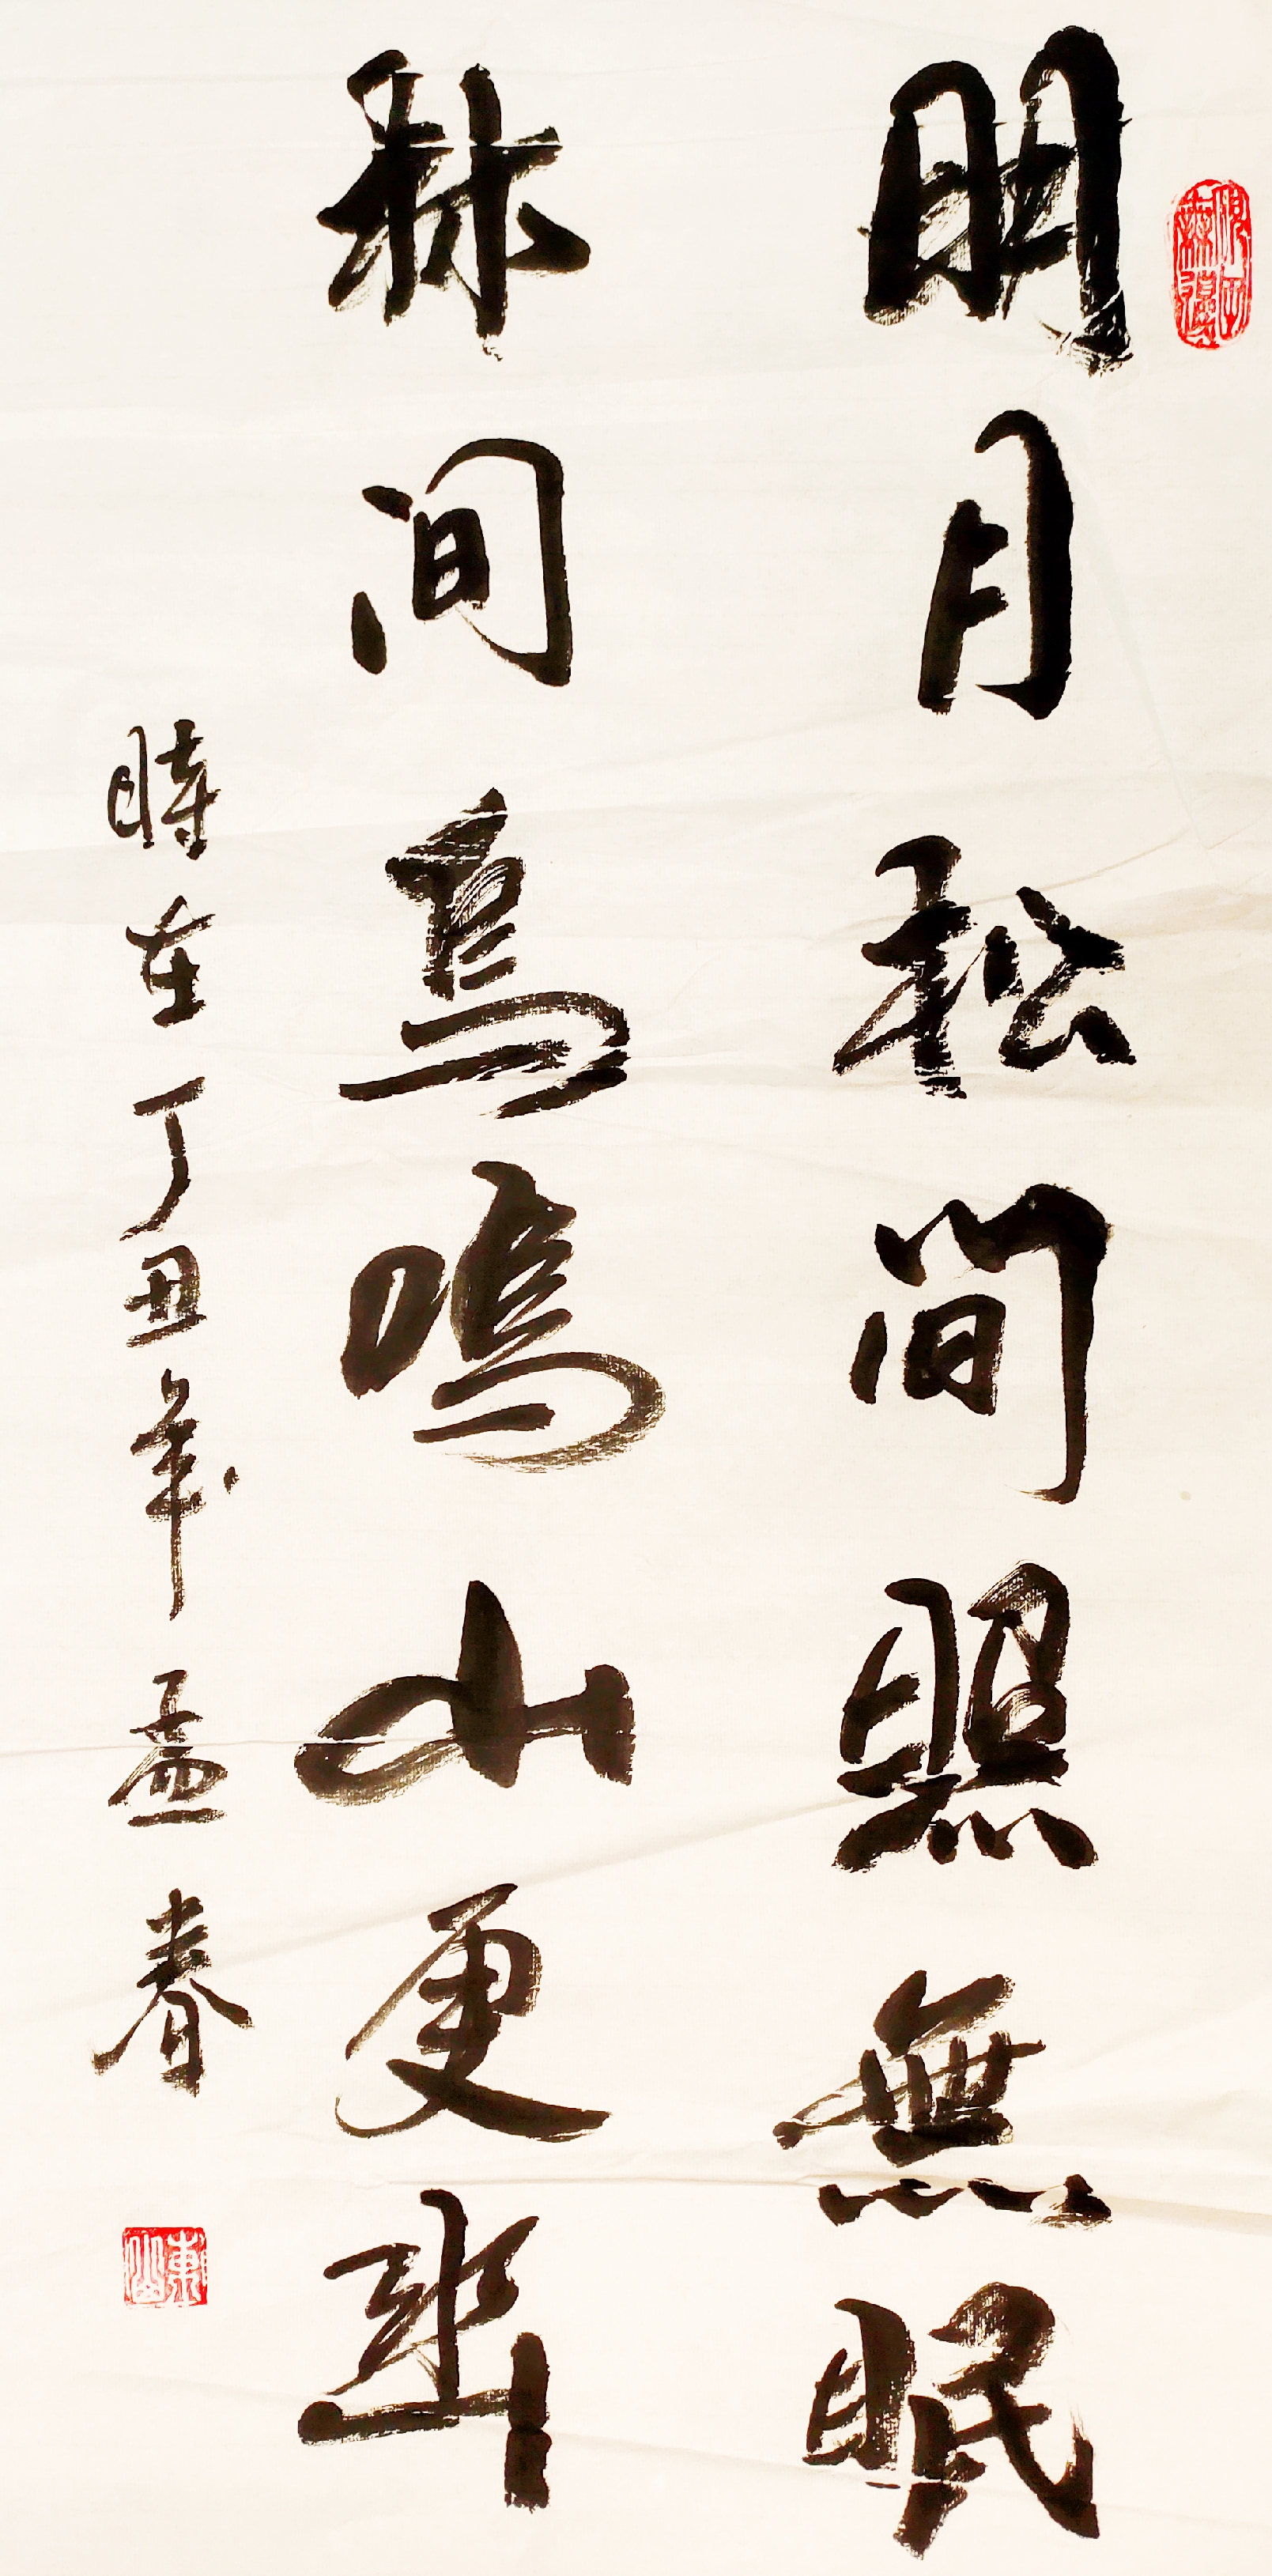 明月松間照無眠
林间鳥鳴山更幽
時在丁丑年孟春
東山